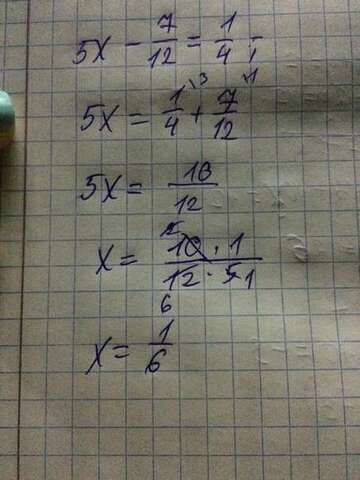 5x - 7/12 = 1/4;
5x = 1/4\3 + 7/12\1
5x = 10/12
x = 10 2 · 1 / 12 6 · 5 1
x = 1/6